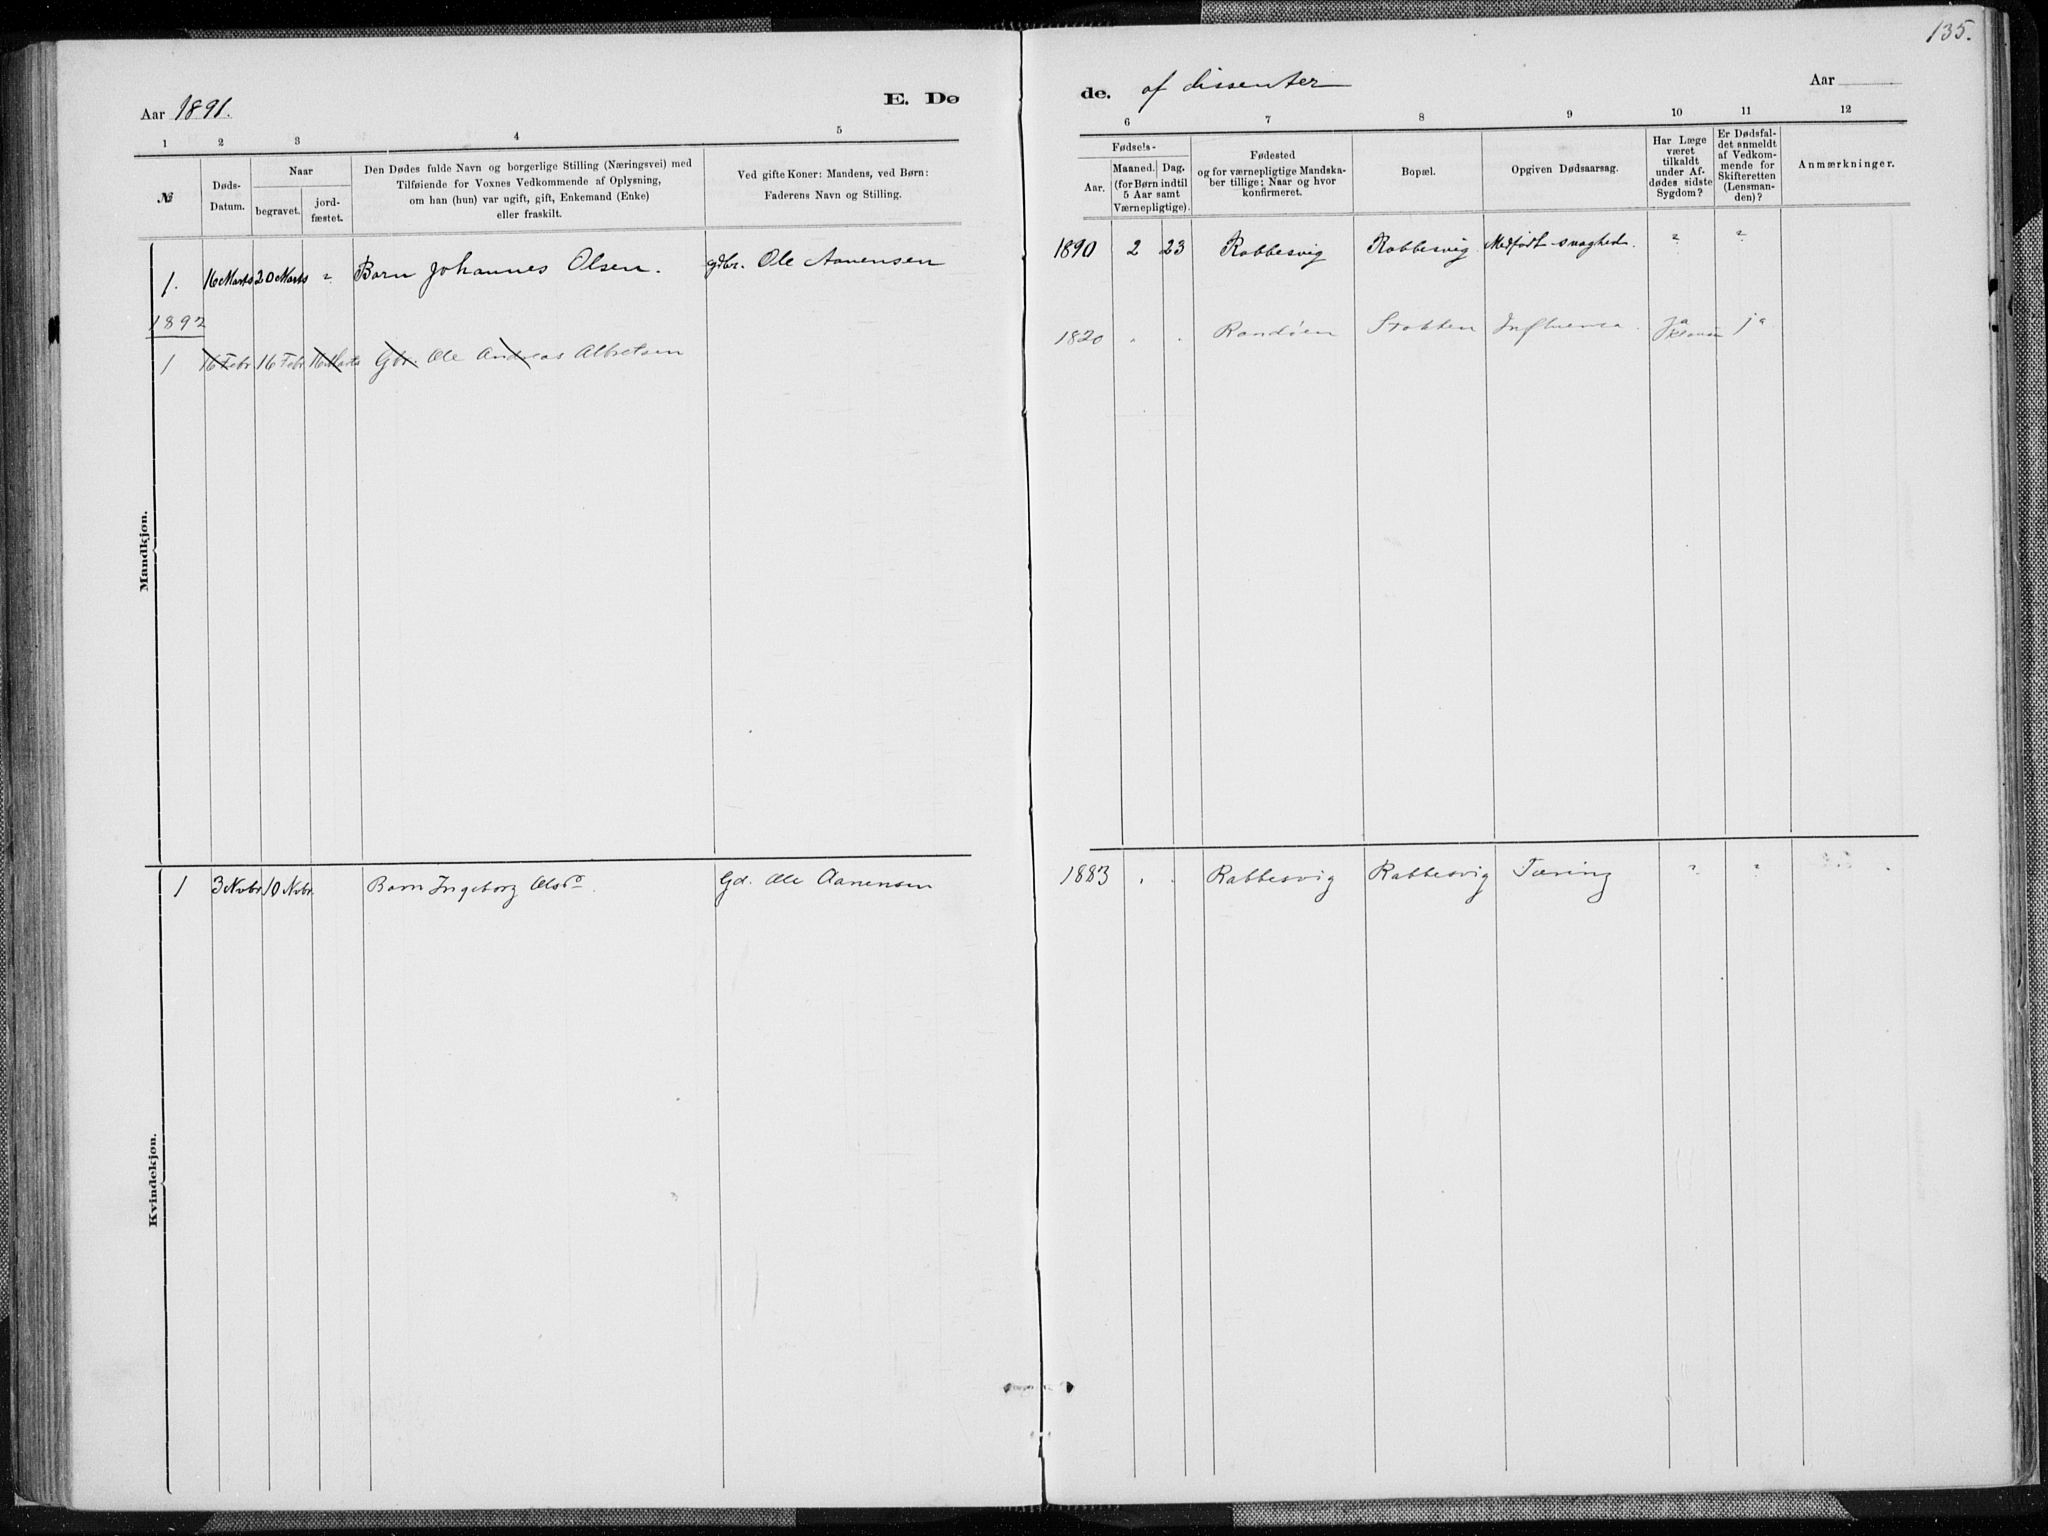 135.
Aar 1891.
E. Dø
de. af dissenter
Aar
1 2 3 4 5
6 7 8 9 10 11 12
№
Døds-
Datum.
Naar
begravet.
jord-
fæstet.
Den Dødes fulde Navn og borgerlige Stilling (Næringsvei) med
Tilføiende for Voxnes Vedkommende af Oplysning,
om han (hun) var ugift, gift, Enkemand (Enke)
eller fraskilt.
Ved gifte Koner: Mandens, ved Børn:
Faderens Navn og Stilling.
Fødsels-
Aar.
Maaned. Dag.
(for Børn indtil
5 Aar samt
Værnepligtige).
Fødested
og for værnepligtige Mandska-
ber tillige: Naar og hvor
konfirmeret.
Bopæl.
Opgiven Dødsaarsag.
Har Læge
været
tilkaldt
under Af-
dødes sidste
Sygdom?
Er Dødsfal-
det anmeldt
af Vedkom-
mende for
Skifteretten
(Lensman-
den)?
Anmærkninger.
Mandkjøn.
1. 16 Marts 20 Marts " Barn Johannes Olsen. gdbr. Ole Aanensen 1890 2 23 Rabbesvig Rabbesvig Medfødt svaghed. " "
1892
1 16 Febr 16 Febr 16 Marts Gbr. Ole Andreas Albretsen 1820 " " Randøen Stokken Influensa. ja ja
Kvindekjøn.
1 3 Nvbr 10 Nvbr. Barn Ingeborg Olsdr. Gd. Ole Aanensen 1883 " " Rabbesvig Rabbesvig Tæring " "